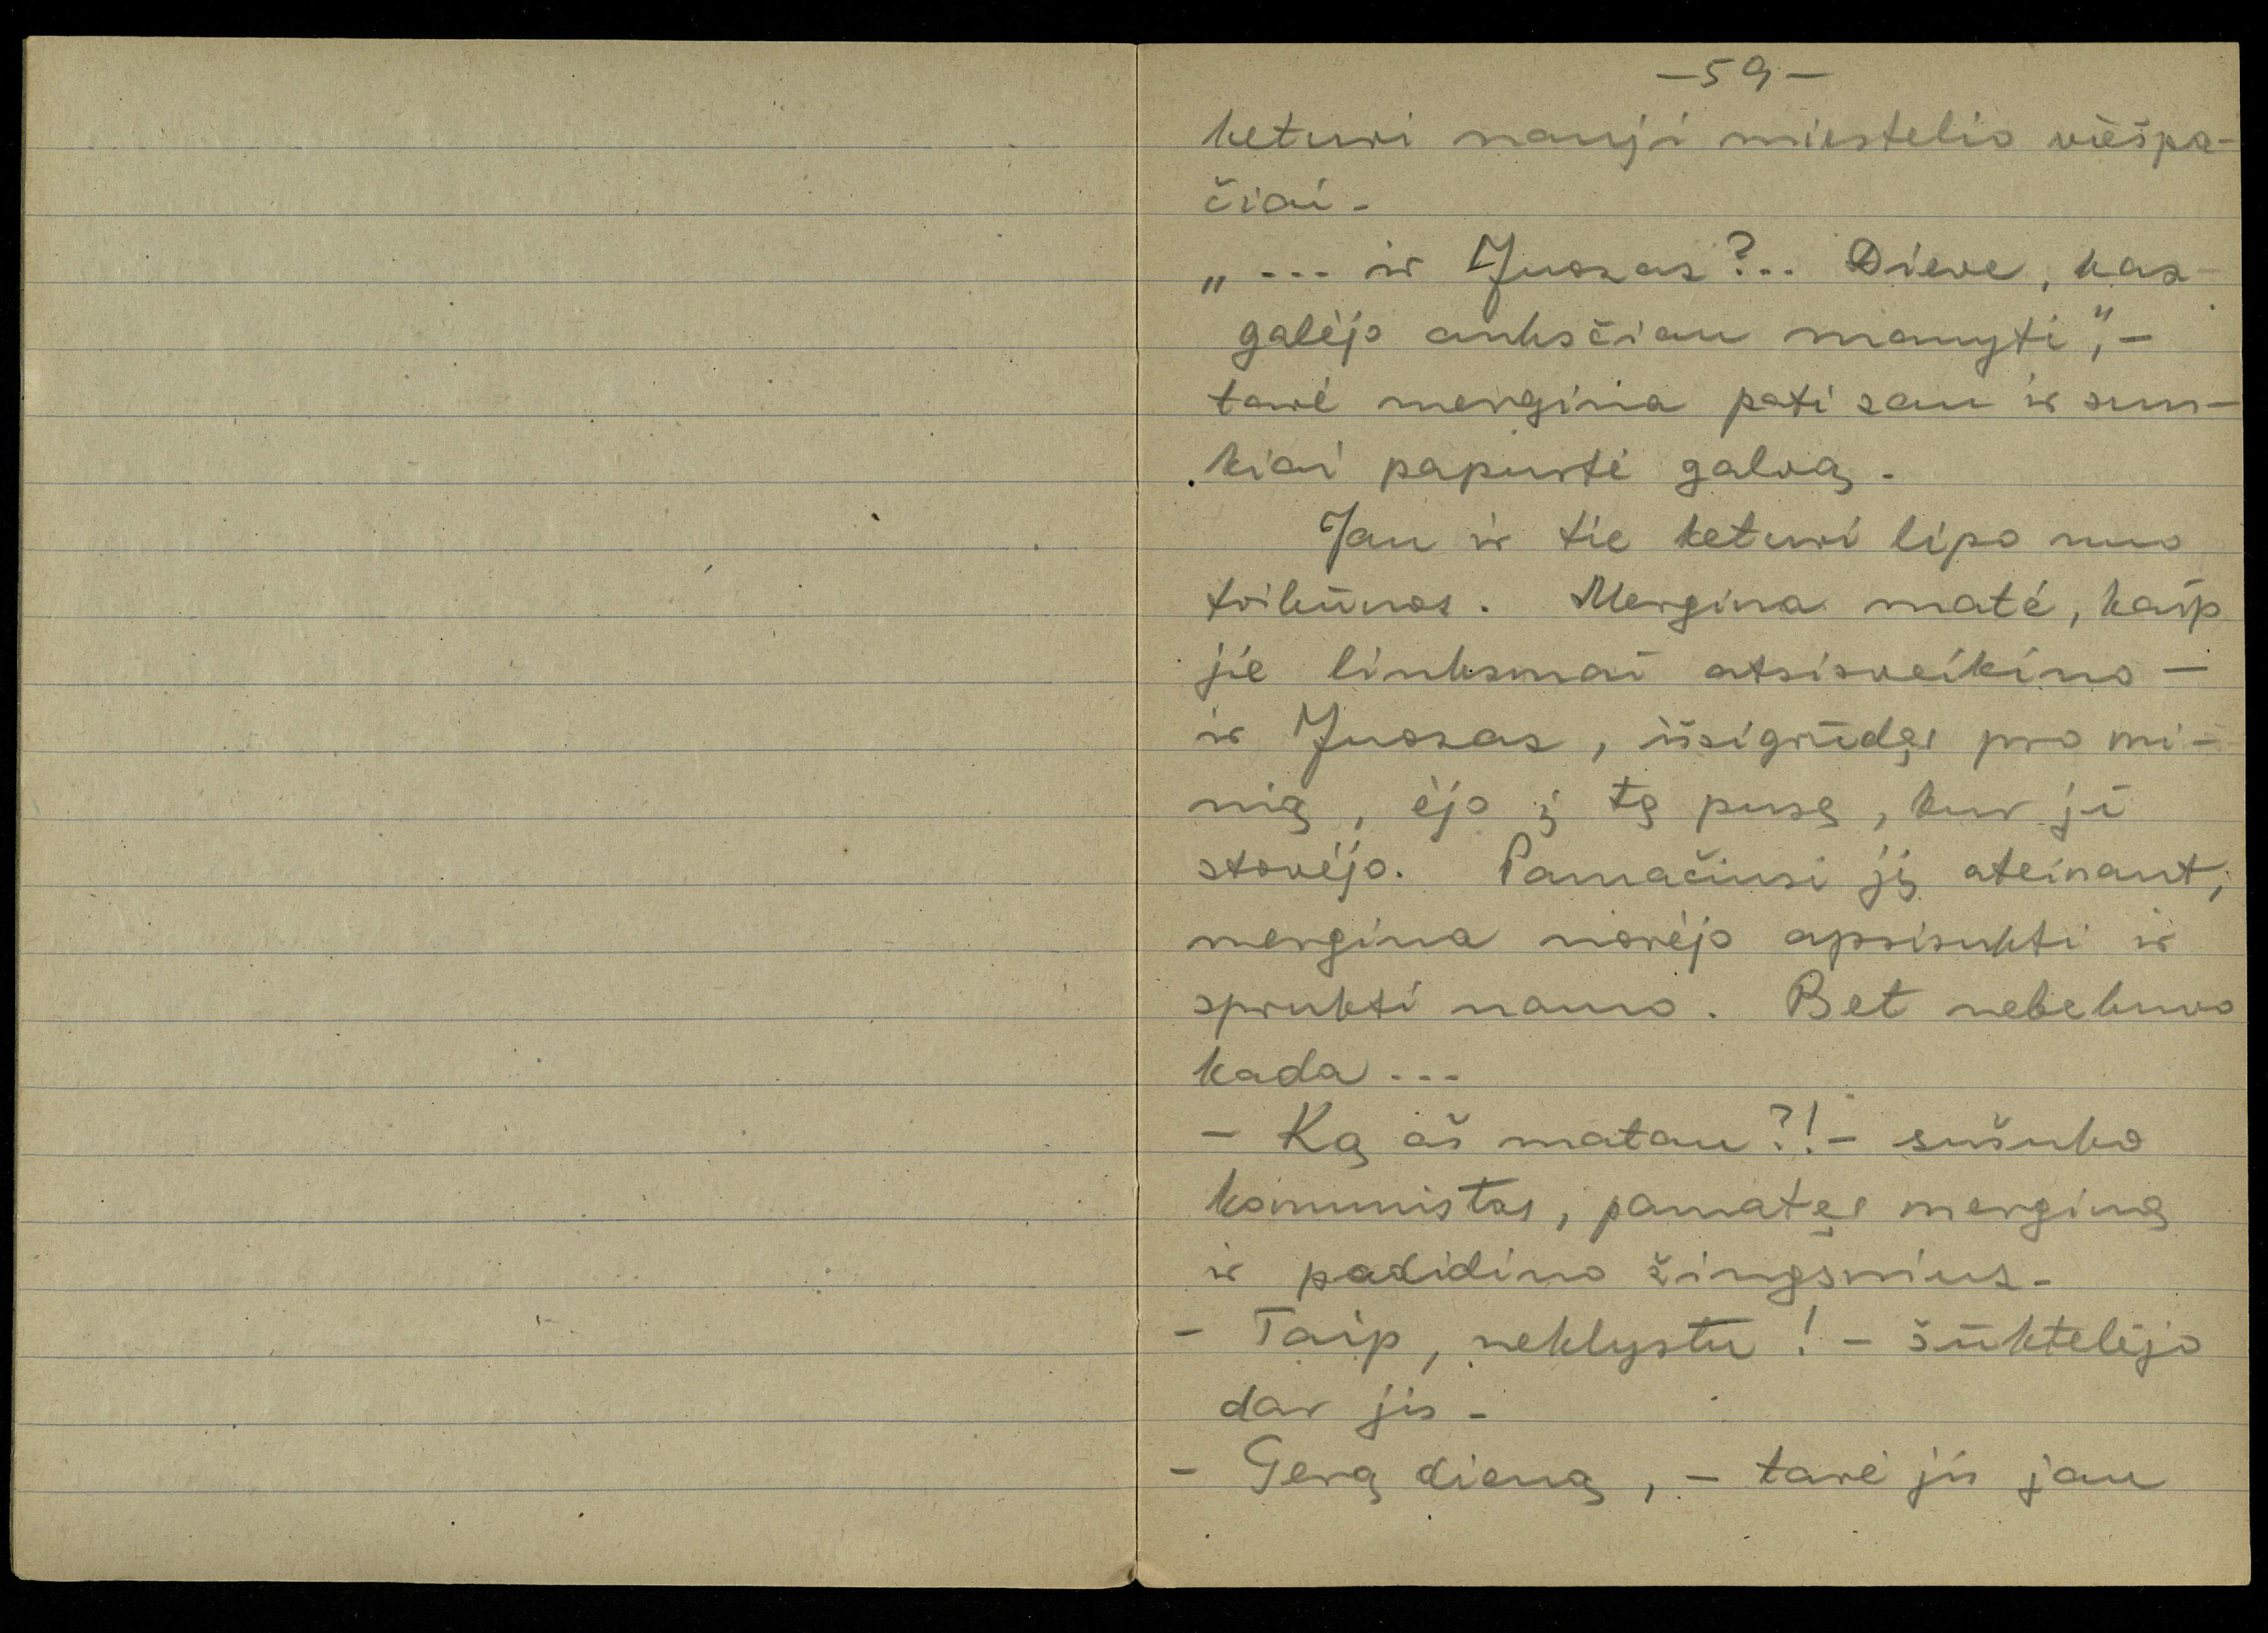 –59–
keturi nauji miestelio viešpa-
čiai.
„... ir Juozas?.. Dieve, kas
galėjo anksčiau manyti“, –
tarė mergina pati sau ir sun-
kiai papurtė galvą.
Jau ir tie keturi lipo nuo
tribūnos. Mergina matė, kaip
jie linksmai atsisveikino –
ir Juozas, išsigrūdęs pro mi-
nią, ėjo į tą pusę, kur ji
stovėjo. Pamačiusi jį ateinant,
mergina norėjo apsisukti ir
sprukti namo. Bet nebebuvo
kada...
– Ką aš matau?! – sušuko
komunistas, pamatęs merginą
ir padidino žingsnius.
– Taip, neklystu! – šūktelėjo
dar jis.
– Gerą dieną, – tarė jis jau